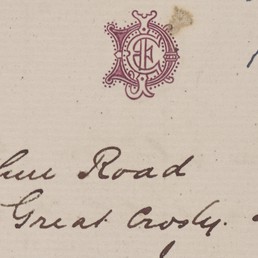 Road
Great Crosby.